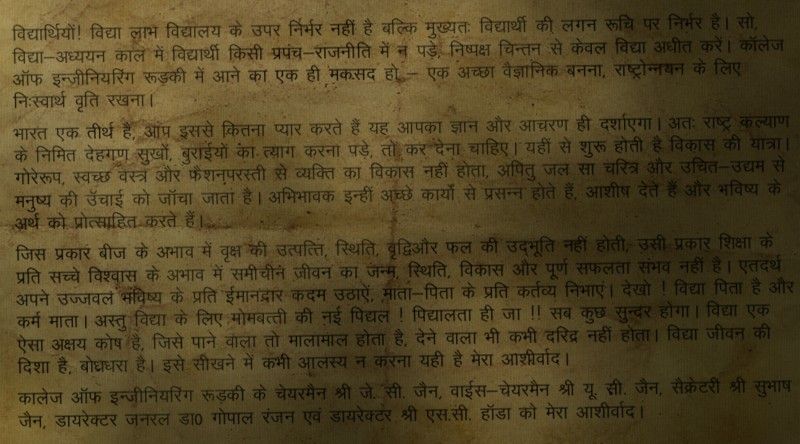 विद्यार्थियों! विद्या लाभ विद्यालय के उपर निर्भर नहीं है बल्कि मुख्यतः विद्यार्थी की लगन रूचि पर निर्भर है। सो,
विद्या–अध्ययन काल में विद्यार्थी किसी प्रपंच–राजनीति में न पड़े, निष्पक्ष चिन्तन से केवल विद्या अधीत करें। कॉलेज
ऑफ इन्जीनियरिंग रूड़की में आने का एक ही मकसद हो – एक अच्छा वैज्ञानिक बनना, राष्ट्रोन्नयन के लिए
निःस्वार्थ वृति रखना।
भारत एक तीर्थ है, आप इससे कितना प्यार करते हैं यह आपका ज्ञान और आचरण ही दर्शाएगा। अतः राष्ट्र कल्याण
के निमित देहगण सुखों, बुराईयों का त्याग करना पड़े, तो कर देना चाहिए। यहीं से शुरू होती है विकास की यात्रा।
गोरेरूप, स्वच्छ वस्त्र और फैशनपरस्ती से व्यक्ति का विकास नहीं होता, अपितु जल सा चरित्र और उचित–उद्यम से
मनुष्य की उँचाई को जाँचा जाता है। अभिभावक इन्हीं अच्छे कार्यो से प्रसन्न होते हैं, आशीष देते हैं और भविष्य के
अर्थ को प्रोत्साहित करते हैं।
जिस प्रकार बीज के अभाव में वृक्ष की उत्पत्ति, स्थिति, वृद्विऔर फल की उदभूति नहीं होती, उसी प्रकार शिक्षा के
प्रति सच्चे विश्वास के अभाव में समीचीन जीवन का जन्म, स्थिति, विकास और पूर्ण सफलता संभव नहीं है। एतदर्थ
अपने उज्जवल भविष्य के प्रति ईमानदार कदम उठाऐं, माता–पिता के प्रति कर्तव्य निभाएं। देखो ! विद्या पिता है और
कर्म माता। अस्तु विद्या के लिए मोमबत्ती की नई पिघल ! पिघालता ही जा !! सब कुछ सुन्दर होगा। विद्या एक
ऐसा अक्षय कोष है, जिसे पाने वाला तो मालामाल होता है, देने वाला भी कभी दरिद्र नहीं होता। विद्या जीवन की
दिशा है, बोधधरा है। इसे सीखने में कभी आलस्य न करना यही है मेरा आशीर्वाद।
कालेज ऑफ इन्जीनियरिंग रूड़की के चेयरमैन श्री जे. सी. जैन, वाईस–चेयरमैन श्री यू. सी. जैन, सैक्रेटरी श्री सुभाष
जैन, डायरेक्टर जनरल डा0 गोपाल रंजन एवं डायरेक्टर श्री एस.सी. हॉडा को मेरा आशीर्वाद।